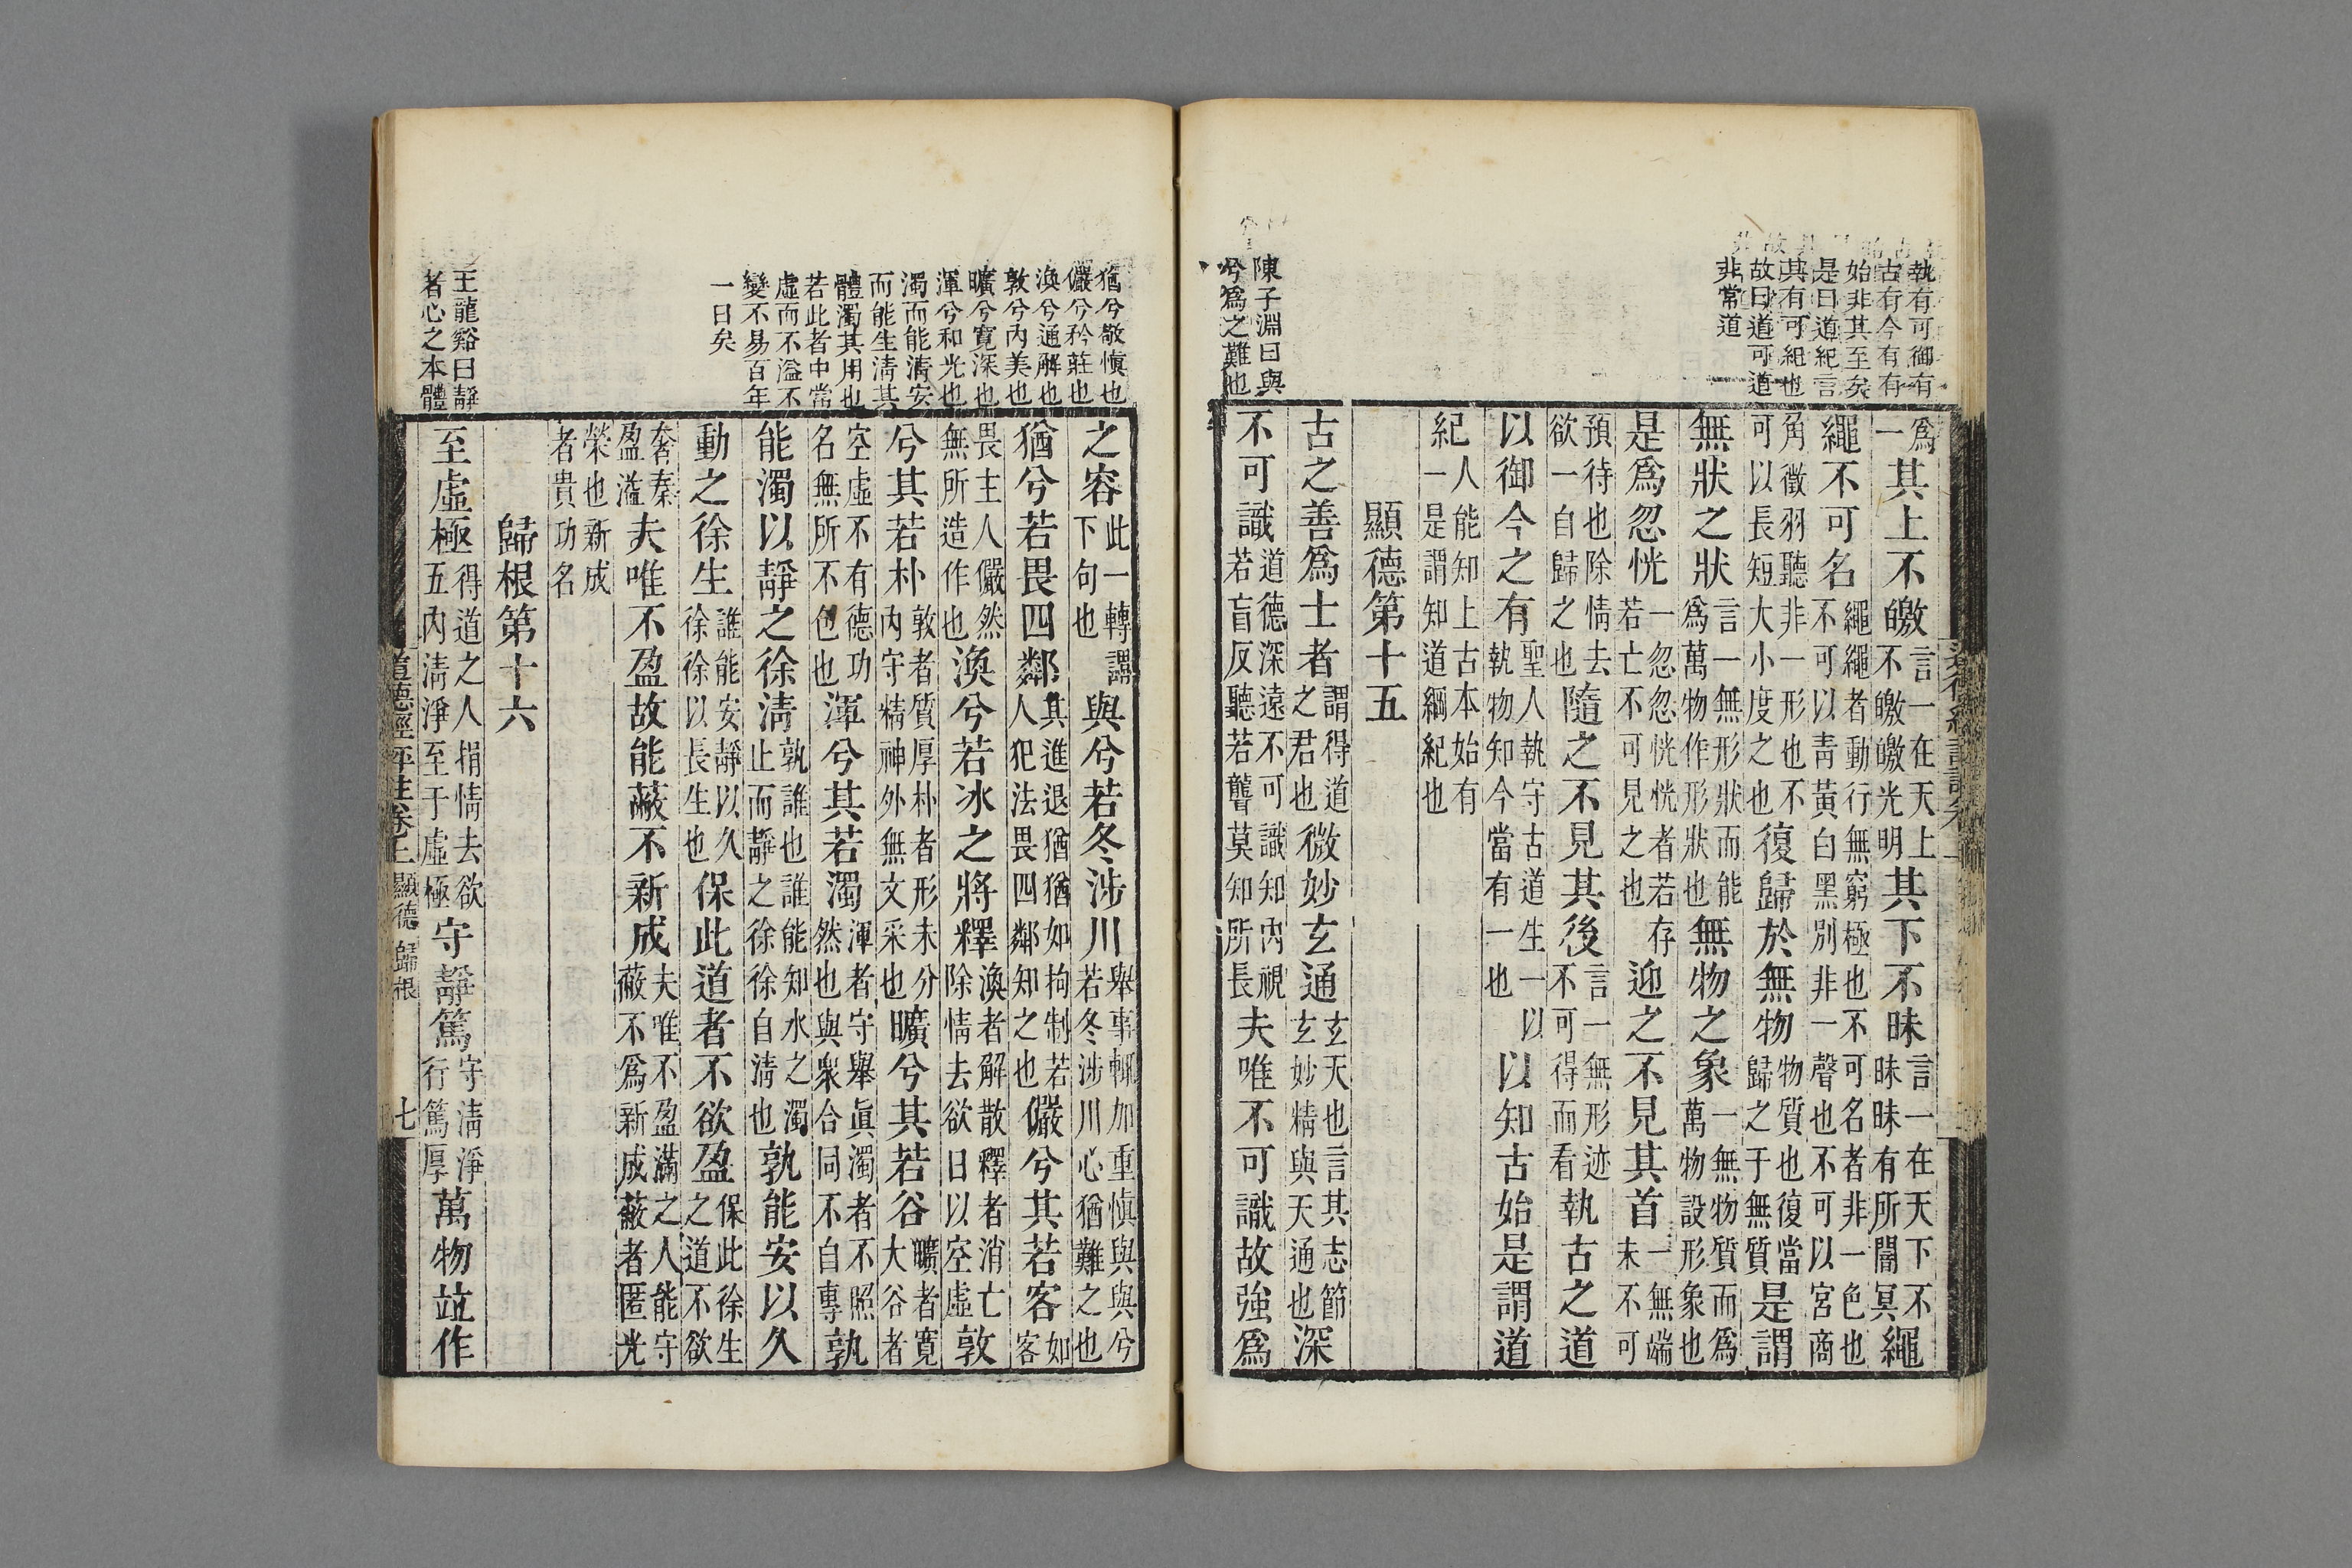 執有可御有
古有今有有
始非其至矣
是曰道紀言
其有可紀也
故曰道可道
非常道
陳子淵曰與
兮爲之難也
爲一其上不皦言一在天上不皦皦光明其下不昧言一在天下不昧昧有所闇冥繩
繩不可名繩繩者動行無窮極也不可名者非一色也不可以靑黃白黑別非一聲也不可以宮商
角徵羽聽非一形也不可以長短大小度之也復歸於無物物質也復當歸之于無質是謂
無狀之狀言一無形狀而能爲萬物作形狀也無物之象一無物質而爲萬物設形象也
是爲忽恍一忽忽恍恍者若存若亡不可見之也迎之不見其首一無端末不可
預待也除情去欲一自歸之也隨之不見其後言一無形迹不可得而看執古之道
以御今之有聖人執守古道生一以執物知今當有一也以知古始是謂道
紀人能知上古本始有一是謂知道綱紀也
顯德第十五
古之善爲士者謂得道之君也微妙玄通玄天也言其志節玄妙精與天通也深
不可識道德深遠不可識知內視若盲反聽若聾莫知所長夫唯不可識故強爲
猶兮敬愼也
儼兮矜莊也
渙兮通解也
敦兮內美也
曠兮寬深也
渾兮和光也
濁而能淸安
而能生淸其
體濁其用也
若此者中當
虛而不溢不
變不易百年
一日矣
王龍谿曰靜
者心之本體
之容此一轉謂下句也與兮若冬涉川舉事輒加重愼與與兮若冬涉川心猶難之也
猶兮若畏四鄰其進退猶猶如拘制若人犯法畏四鄰知之也儼兮其若客如客
畏主人儼然無所造作也渙兮若冰之將釋渙者解散釋者消亡除情去欲日以空虛敦
兮其若朴敦者質厚朴者形未分內守精神外無文采也曠兮其若谷曠者寬大谷者
空虛不有德功名無所不包也渾兮其若濁渾者守舉眞濁者不照然也與衆合同不自專孰
能濁以靜之徐淸孰誰也誰能知水之濁止而靜之徐徐自淸也孰能安以久
動之徐生誰能安靜以久徐徐以長生也保此道者不欲盈保此徐生之道不欲
奢秦盈溢夫唯不盈故能蔽不新成夫唯不盈滿之人能守蔽不爲新成蔽者匿光
榮也新成者貴功名
歸根第十六
至虛極得道之人捐情去欲五內淸淨至于虛極守靜篤守淸淨行篤厚萬物竝作
道德經評註卷上 顯德 歸根 七